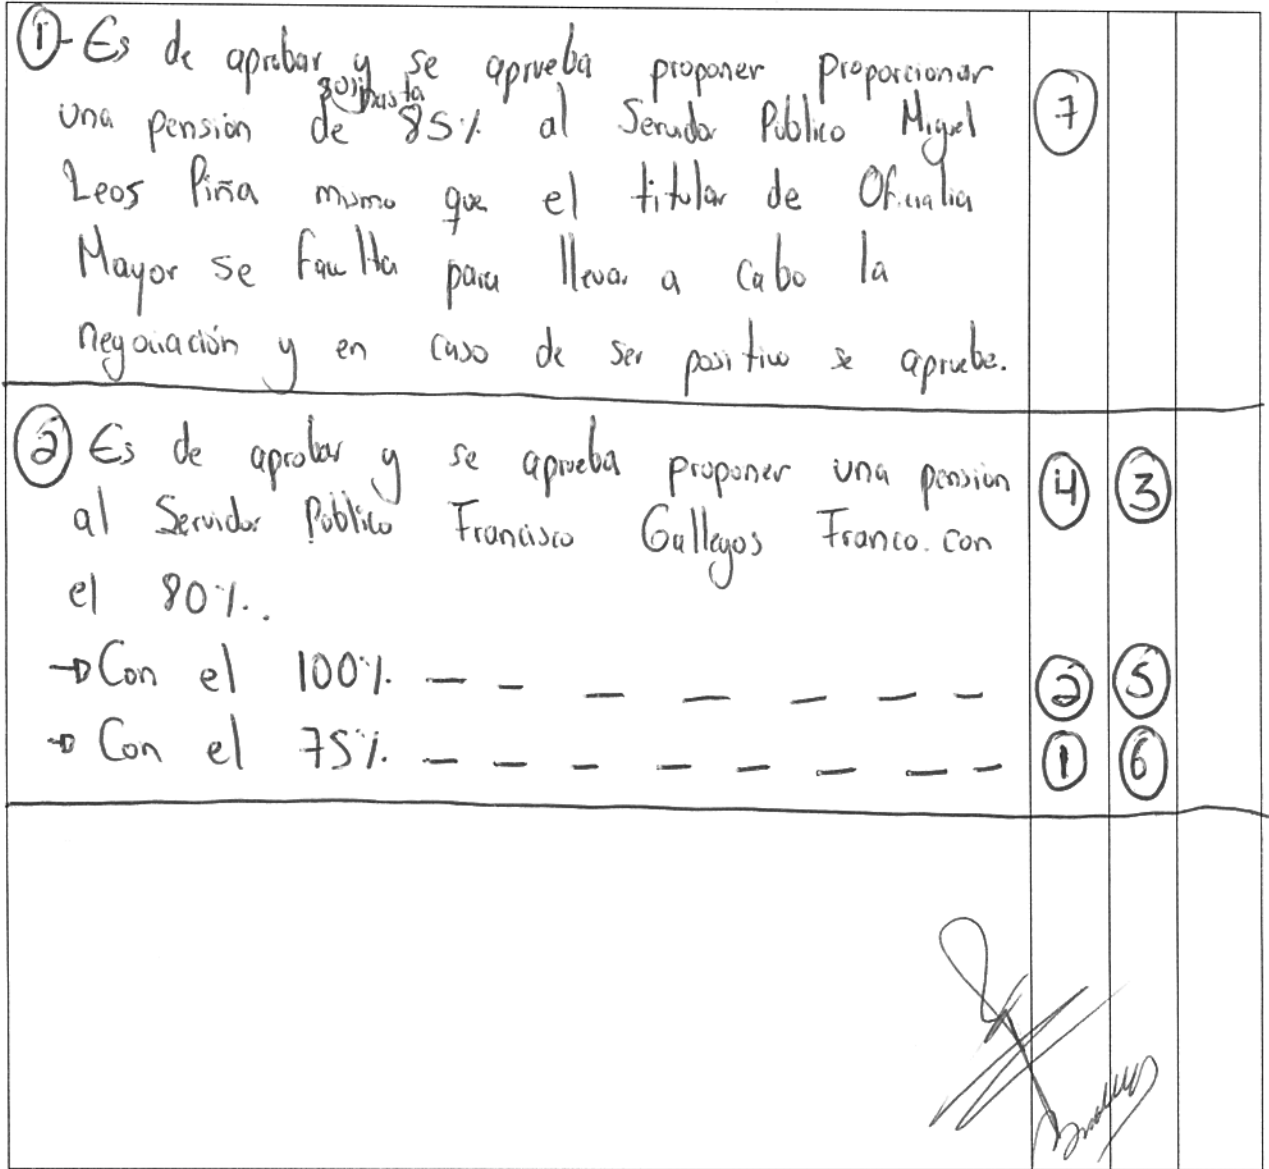 ① - Es de aprobar y se aprueba proponer proporcionar ⑦
80% hasta
una pensión de 85% al Servidor Público Miguel
Leos Piña mismo que el titular de Oficialia
Mayor se faculta para llevar a cabo la
negociación y en caso de ser positivo se apruebe.
② Es de aprobar y se aprueba proponer una pensión ④ ③
al Servidor Público Francisco Gallegos Franco. con
el 80%.
→ Con el 100% - - - - - - - ② ⑤
→ Con el 75% - - - - - - - - ① ⑥